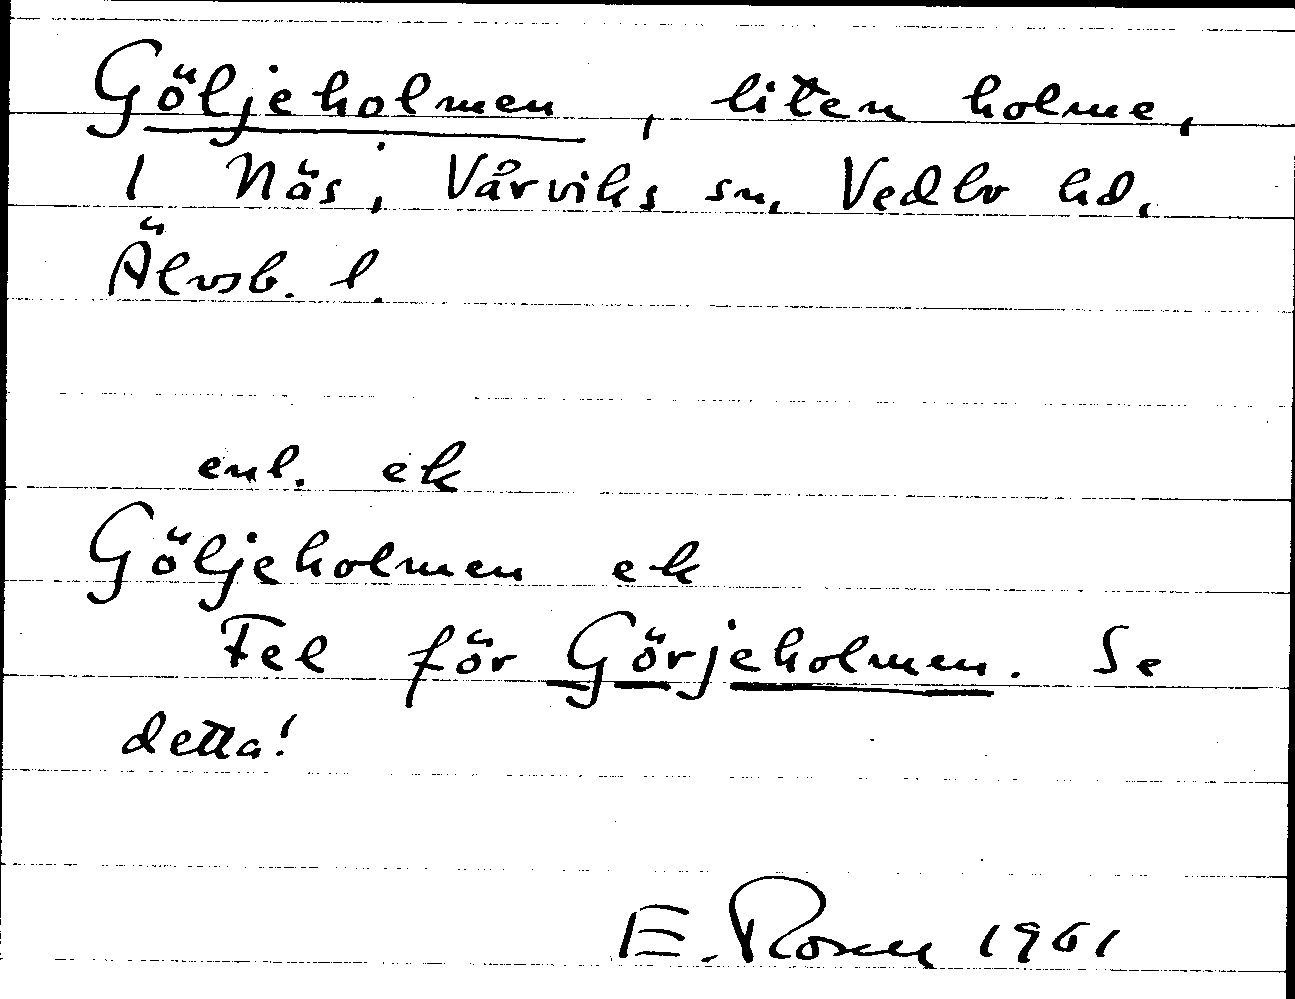 Göljeholmen, liten holme,
1 Näs, Vårviks sn, Vedbo hd.
Älvsb. l.
enl. ek
Göljeholmen ek
Fel för Görjeholmen. Se
detta!
E. Rosen 1961